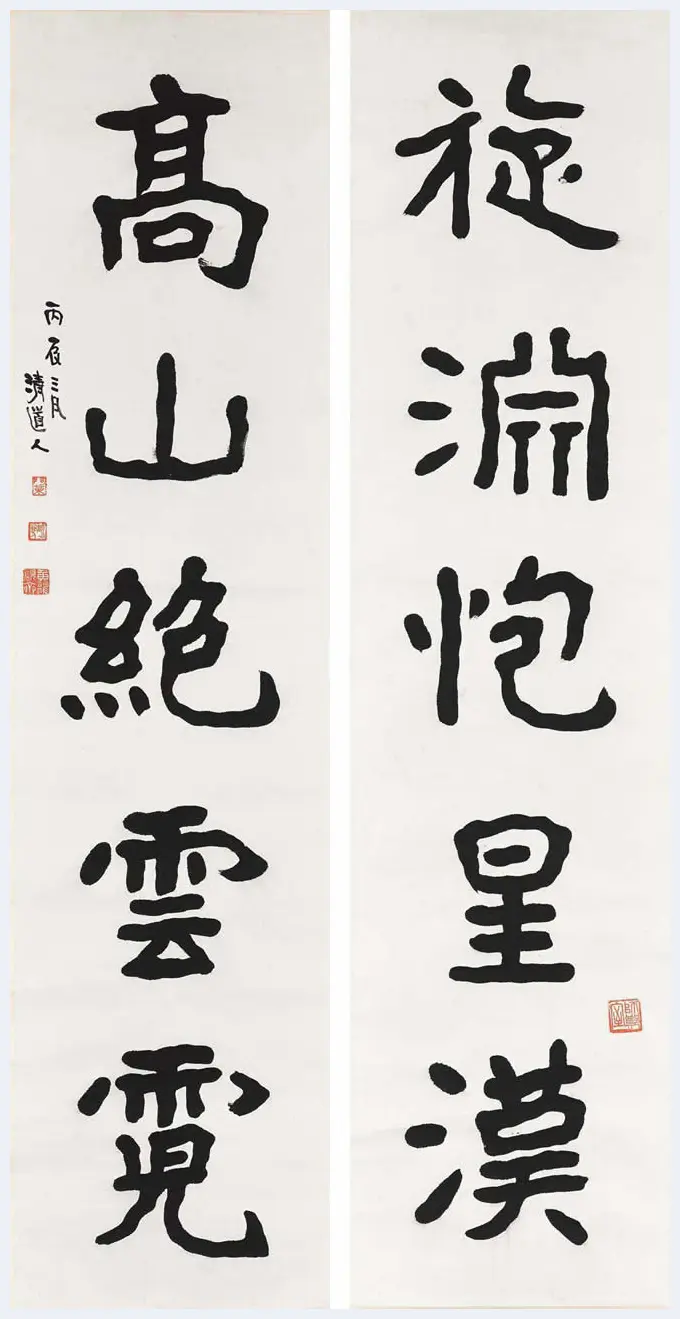 旋淵抱星漢
高山絕雲霓
丙辰三月
清道人